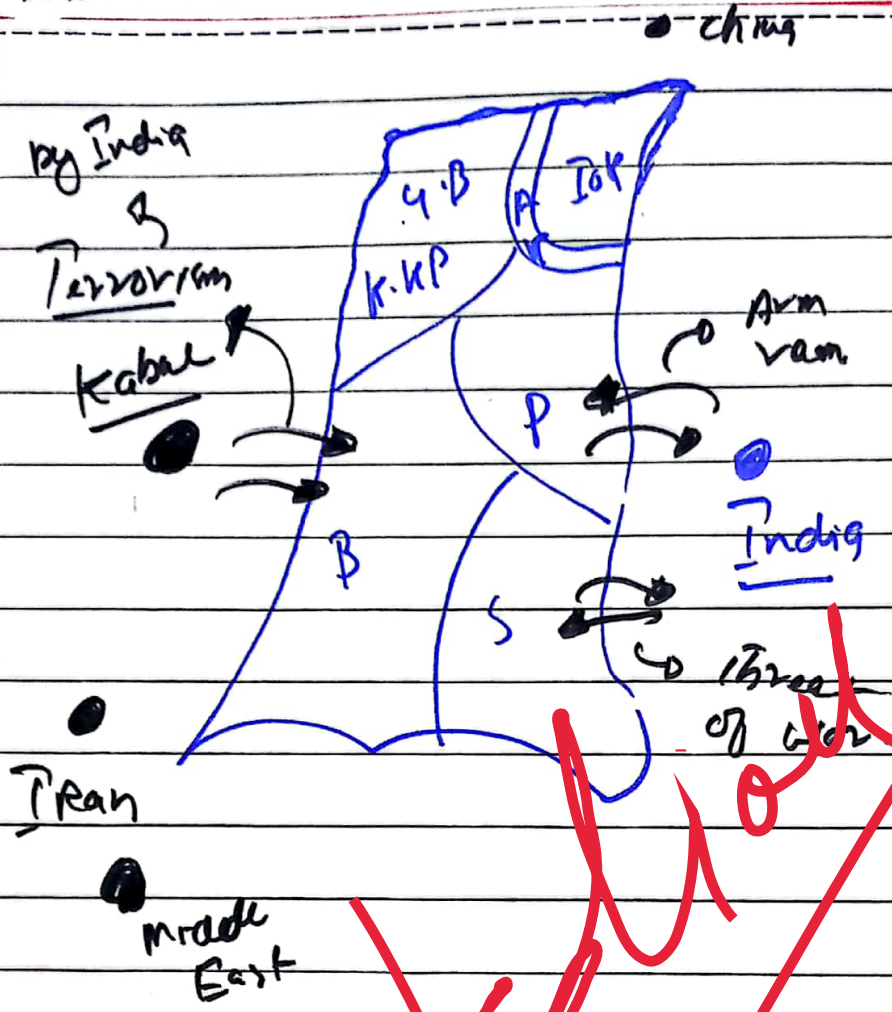 China
by India
Terrorism
Kabul
G.B
K.KP
A
IOK
P
B
S
Arm
India
Threat
of war
Iran
Middle
East